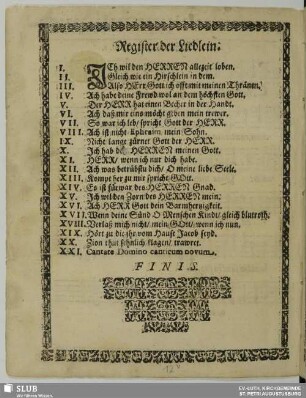 Register der Liedlein.
I. ICh wil den HERREN allezeit loben.
II. Gleich wie ein Hirschlein in dem.
III. Also HErr Gott/ ich offt mit meinen Thränen.
IV. Ach habe deine Frewd wol an dem höchsten Gott.
V. Der HERR hat einen Becher in der Handt.
VI. Ach daß mir eins möcht geben mein trewer.
VII. So war ich leb/ spricht Gott der HERR.
VIII. Ach ist nicht Ephraim mein Sohn.
IX. Nicht lange zürnet Gott der HERR.
X. Ich hab dich HERREN meinen Gott.
XI. HERR/ wenn ich nur dich habe.
XII. Ach was betrübstu dich/ O meine liebe Seele.
XIII. Kompt her zu mir spricht GOtt.
XIV. Es ist fürwar des HERREN Gnad.
XV. Ich wil den Zorn des HERREN mein.
XVI. Ach HERR Gott dein Barmhertzigkeit.
XVII. Wenn deine Sünd O Menschen Kindt/ gleich blutroth.
XVIII. Verlaß mich nicht/ mein GOtt/ wenn ich nun.
XIX. Hört zu die ihr vom Hauß Jacob seyd.
XX. Zion that sehnlich klagen/ trawret.
XXI. Cantate Domino canticum novum.
FINIS.
SLUB
Wir führen Wissen.
EV.-LUTH. KIRCHGEMEINDE
ST. PETRI AUGUSTUSBURG